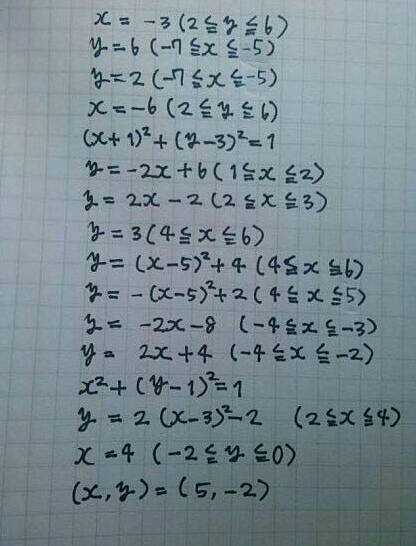 x = -3 (2 ≦ y ≦ 6)
y = 6 (-7 ≦ x ≦ -5)
y = 2 (-7 ≦ x ≦ -5)
x = -6 (2 ≦ y ≦ 6)
(x+1)² + (y-3)² = 1
y = -2x + 6 (1 ≦ x ≦ 2)
y = 2x - 2 (2 ≦ x ≦ 3)
y = 3 (4 ≦ x ≦ 6)
y = (x-5)² + 4 (4 ≦ x ≦ 6)
y = -(x-5)² + 2 (4 ≦ x ≦ 5)
y = -2x - 8 (-4 ≦ x ≦ -3)
y = 2x + 4 (-4 ≦ x ≦ -2)
x² + (y-1)² = 1
y = 2 (x-3)² - 2 (2 ≦ x ≦ 4)
x = 4 (-2 ≦ y ≦ 0)
(x, y) = (5, -2)